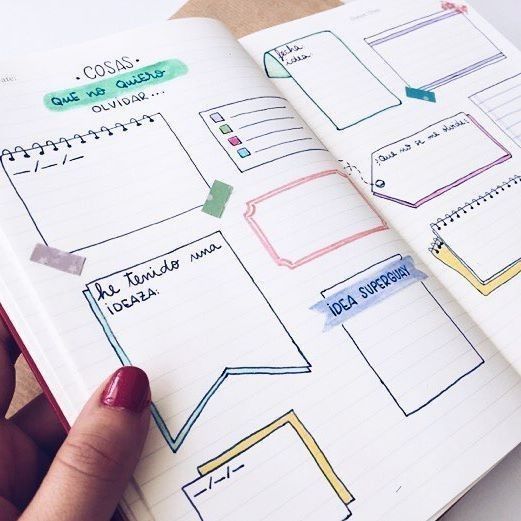 ·COSAS·
QUE NO QUIERO
OLVIDAR...
—/—/—
he tenido una
iDEAZA:
—/—/—
fecha
idea:
¡Que no se me olvide!
iDEA SUPERGUAY